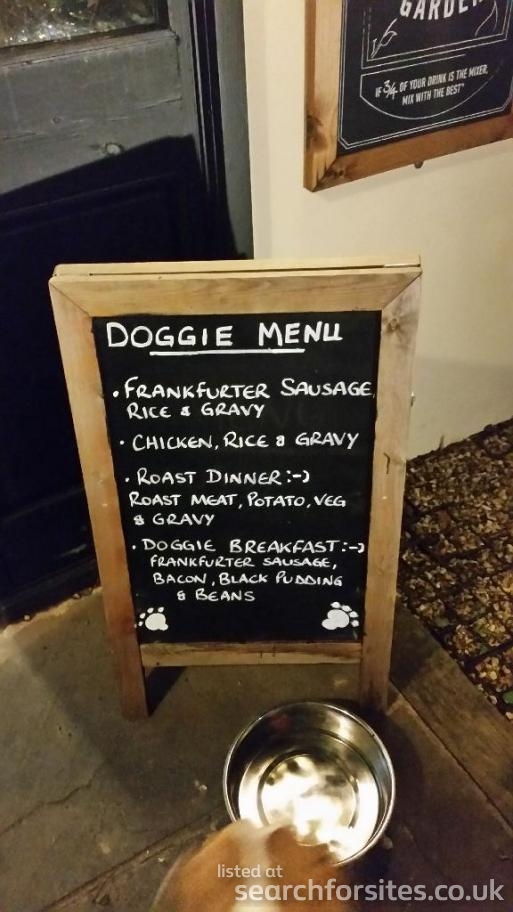 GARDEN
IF 3/4 OF YOUR DRINK IS THE MIXER,
MIX WITH THE BEST"
DOGGIE MENU
• FRANKFURTER SAUSAGE,
RICE & GRAVY
• CHICKEN, RICE & GRAVY
• ROAST DINNER :-)
ROAST MEAT, POTATO, VEG
& GRAVY
• DOGGIE BREAKFAST :-)
FRANKFURTER SAUSAGE,
BACON, BLACK PUDDING
& BEANS
listed at
searchforsites.co.uk